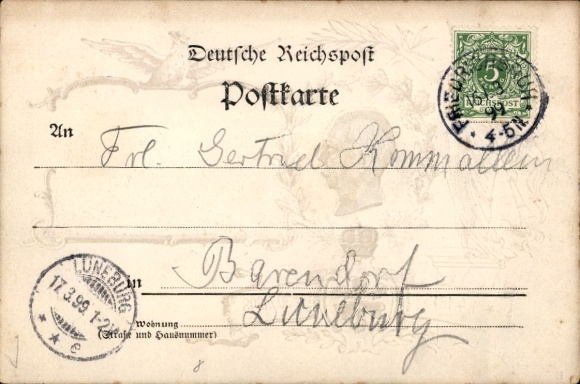 Deutsche Reichspost
Postkarte
5
REICHSPOST
99
4-5N
An
Frl. Gertrud Kommallein
LÜNEBURG
17.3.99. 1-2N
* * e
in Barendorf
Lüneburg
Wohnung
(Straße und Hausnummer)
8